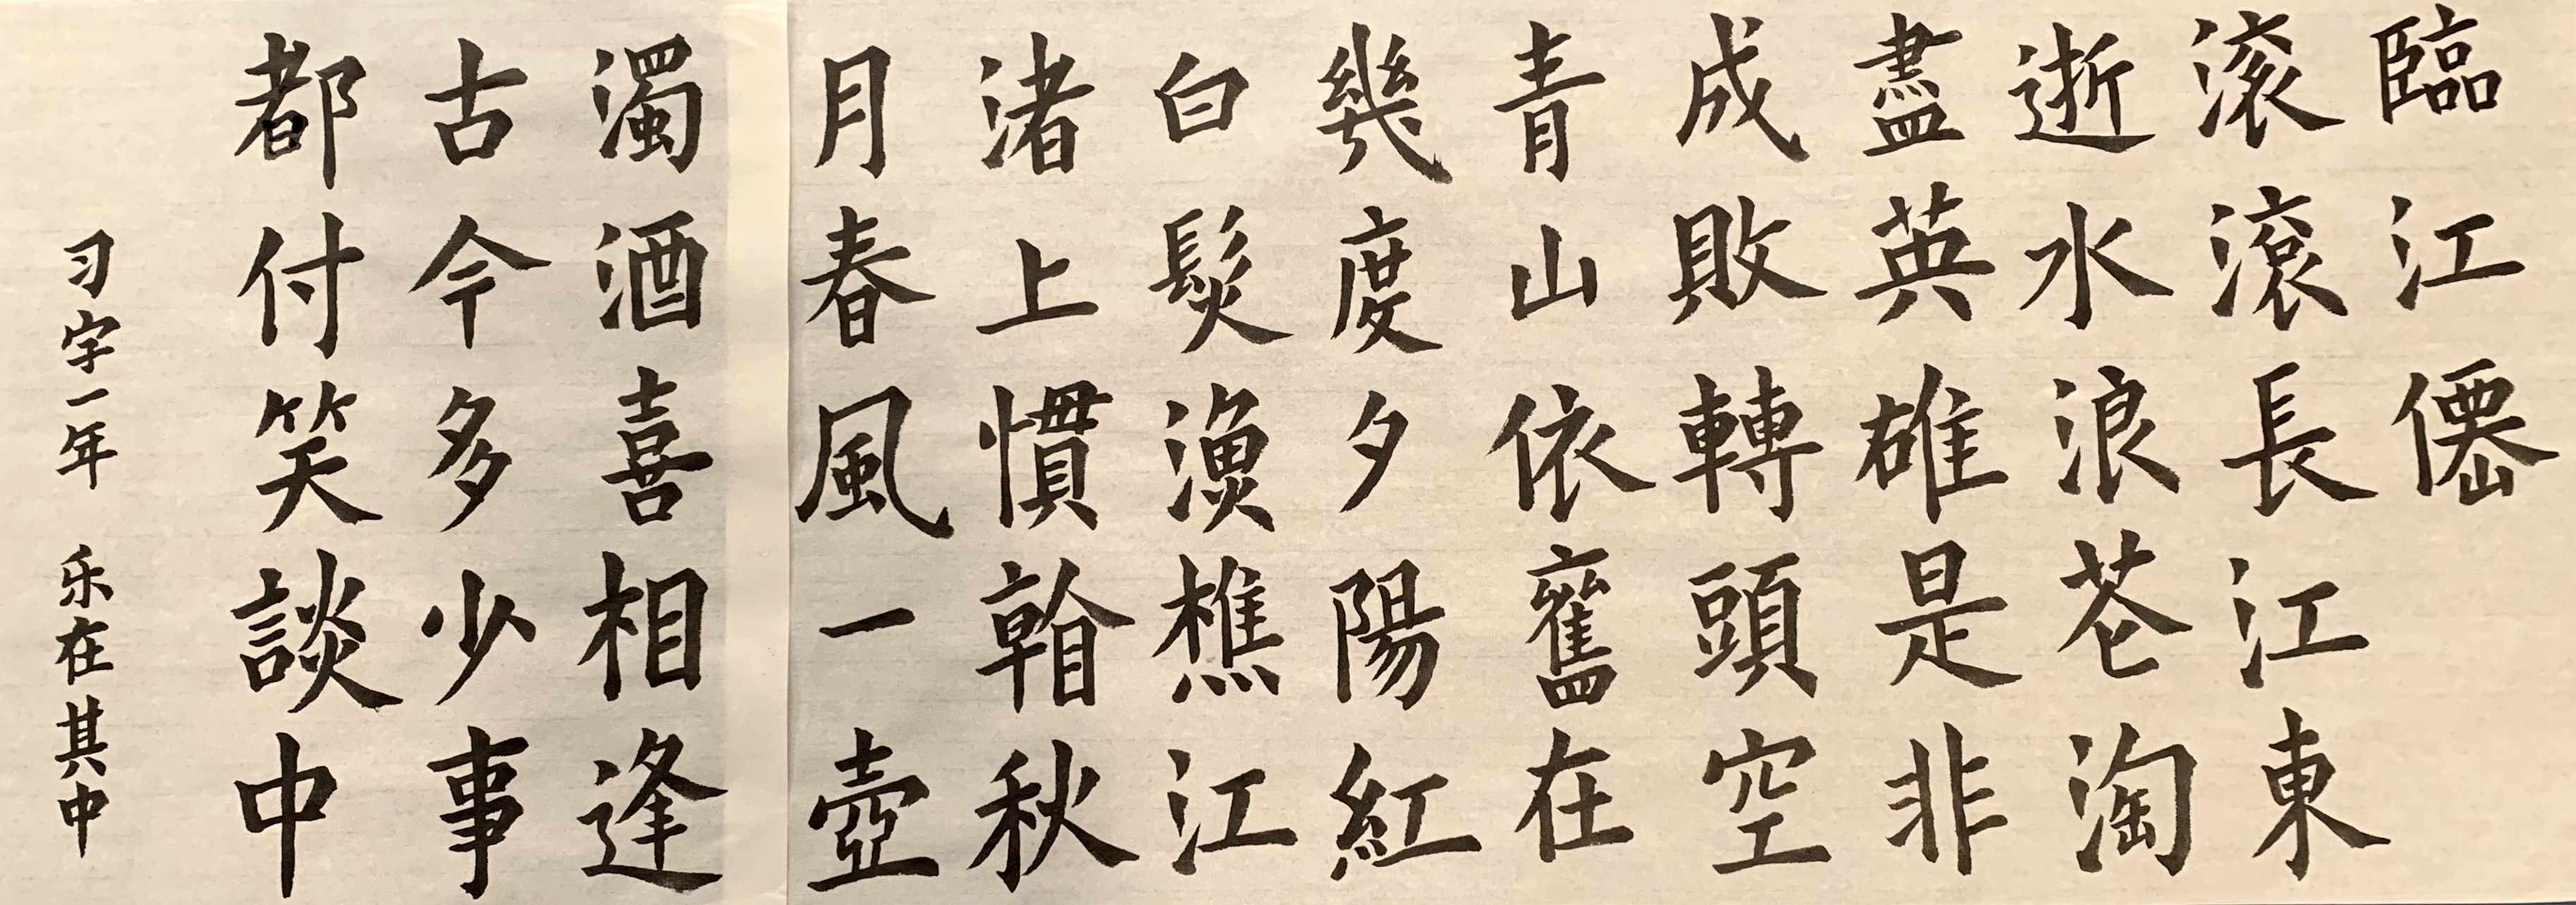 臨江僊
滚滾長江東
逝水浪花淘
盡英雄是非
成敗轉頭空
青山依舊在
幾度夕陽紅
白髮漁樵江
渚上慣看秋
月春風一壺
濁酒喜相逢
古今多少事
都付笑談中
习字一年 乐在其中